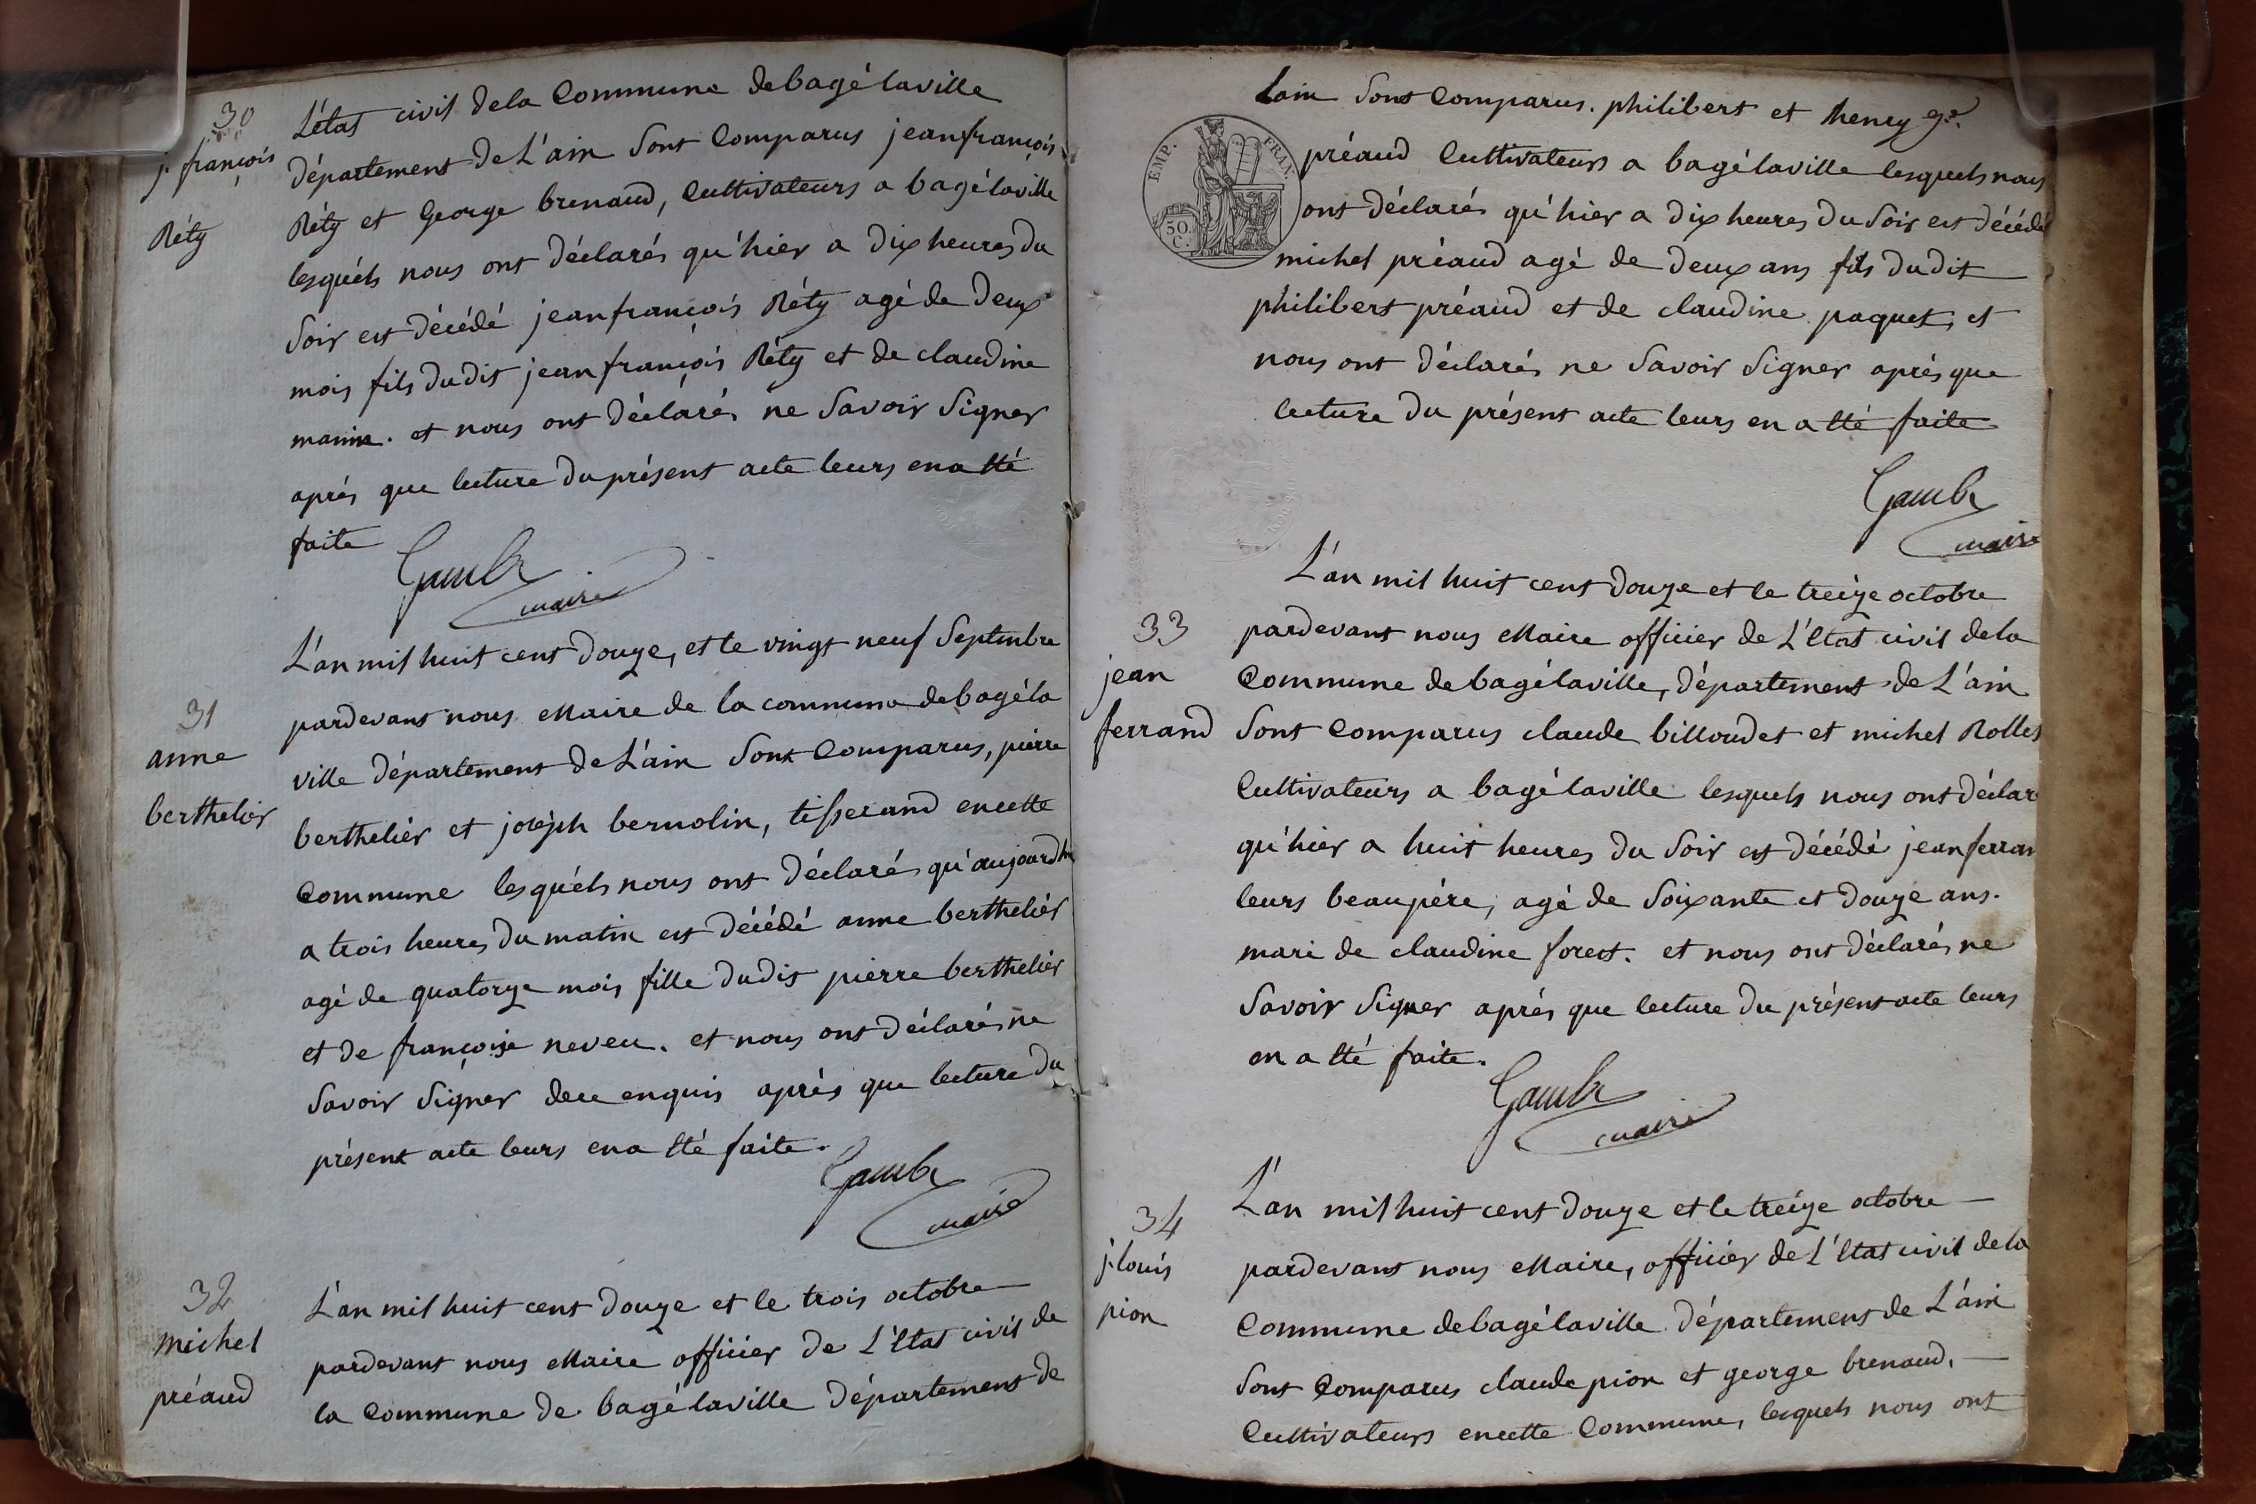 30
j. françois
Réty
L'état civil dela Commune debagélaville
département de L'ain sont Comparus jeanfrançois
Réty et George brenaud, Cultivateurs a bagélaville
lesquéls nous ont déclarés qu'hier a dix heures du
soir est décédé jeanfrançois Réty agé de deux
mois fils dudit jeanfrançois Réty et de claudine
manin. et nous ont déclarés ne savoir signer
aprés que lecture duprésent acte leurs enaété
faite
maire
31
anne
berthelier
L'an mil huit cent douze, et le vingt neuf septembre
pardevant nous Maire de la commune debagéla
ville département de L'ain sont Comparus, pierre
berthelier et joséph bernolin, tisserand encette
Commune lesquéls nous ont déclarés qu'aujourdhu
a trois heures du matin est décédé anne berthelier
agé de quatorze mois fille dudit pierre berthelier
et de françoise neveu. et nous ont déclarés ne
savoir signer dece enquis aprés que lecture du
présent acte leurs ena été faite.
maire
32
michel
préaud
L'an mil huit cent douze et le trois octobre
pardevant nous Maire officier de L'état civil de
la Commune de bagélaville département de
Lain sont Comparus. philibert et henry ge.
EMP. FRAN.
50.
C.
préaud Cultivateurs a bagélaville lesquels nous
ont déclarés qu'hier a dix heures du soir est décédé
michel préaud agé de deux ans fils dudit
philibert préaud et de claudine paquet, et
nous ont déclarés ne savoir signer aprés que
lecture du présent acte leurs en a été faite
maire
33
jean
ferrand
L'an mil huit cent douze et le treize octobre
pardevant nous Maire officier de L'état civil dela
Commune de bagélaville, département de L'ain
sont Comparus claude billoudet et michel Rollet
Cultivateurs a bagélaville lesquels nous ont déclar
qu'hier a huit heures du soir est décédé jean ferran
leurs beaupére, agé de soixante et douze ans.
mari de claudine forest. et nous ont déclarés ne
savoir signer aprés que lecture du présent acte leurs
en a été faite.
maire
34
j. louis
pion
L'an mil huit cent douze et le treize octobre
pardevant nous Maire, officier de L'état civil dela
Commune debagélaville département de L'ain
sont Comparus claude pion et george brenaud,
Cultivateurs encette Commune, lesquels nous ont